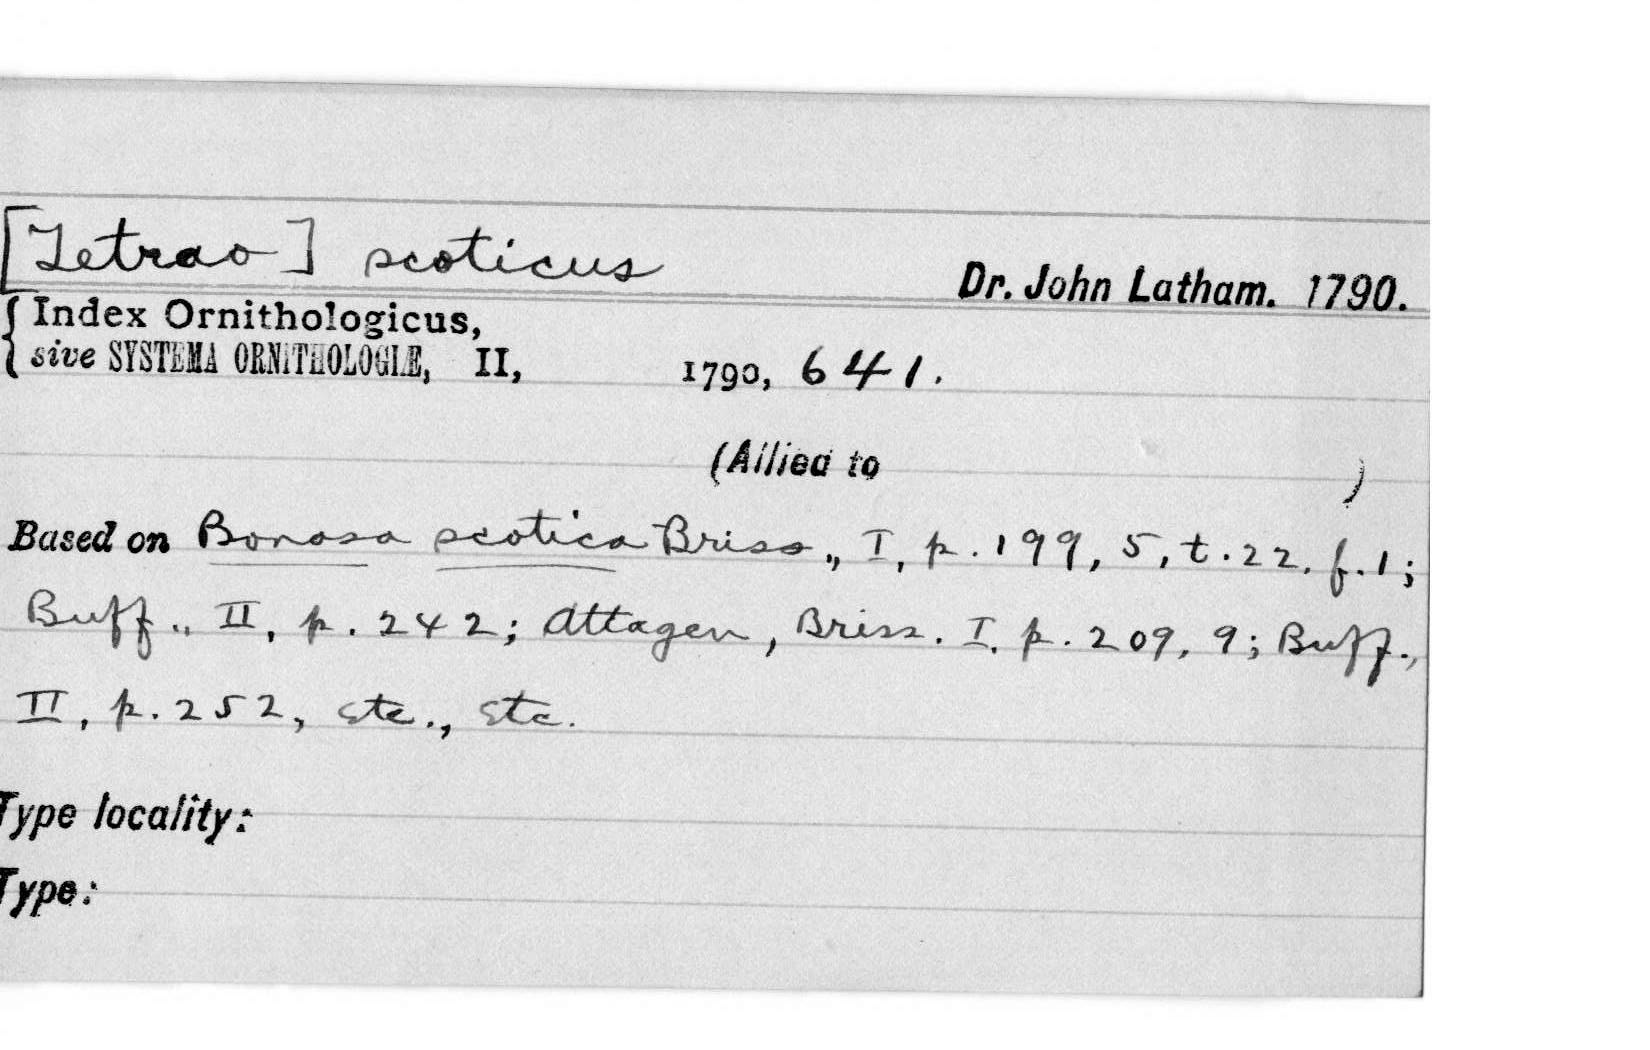 [Tetrao] scoticus
Dr. John Latham. 1790.
{ Index Ornithologicus,
sive SYSTEMA ORNITHOLOGIÆ, II, 1790, 641.
(Allied to )
Based on Bonasa scotica Briss., I, p. 199, 5, t. 22. f. 1;
Buff., II, p. 242; Attagen, Briss. I, p. 209, 9; Buff.,
II, p. 252, etc., etc.
Type locality:
Type: